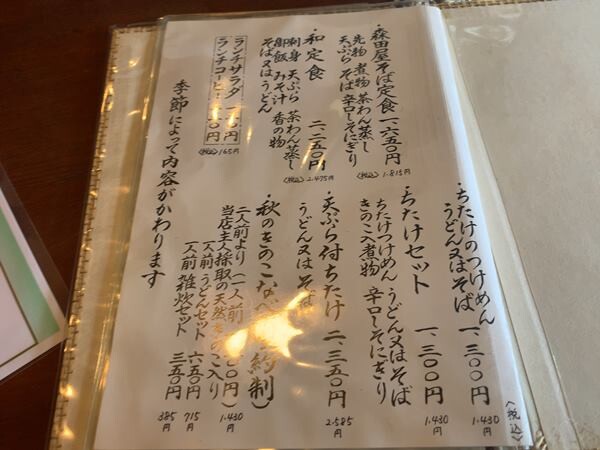 ・森田屋そば定食 一、六五〇円
先物 煮物 茶わん蒸し
天ぷら そば 辛口しそにぎり
〈税込〉 1.815円
・和定食 二、二五〇円
刺身 天ぷら 茶わん蒸し
御飯 みそ汁 香の物
そば又はうどん
〈税込〉 2.475円
ランチサラダ
ランチコーヒー
〈税込〉 165円
季節によって内容がかわります
・ちたけのつけめん 一、三〇〇円
うどん又はそば
〈税込〉
1.430円
・ちたけセット 一、三〇〇円
ちたけつけめん うどん又はそば
きのこ入煮物 辛口しそにぎり
1.430円
・天ぷら付ちたけ 二、三五〇円
うどん又はそば
2.585円
・秋のきのこなべ 約制)
二人前より(一人前 〇〇円)
当店主人採取の天然きのこ入り
一人前うどんセット 六五〇円
一人前 雑炊セット 三五〇円
1.430円
715円
385円